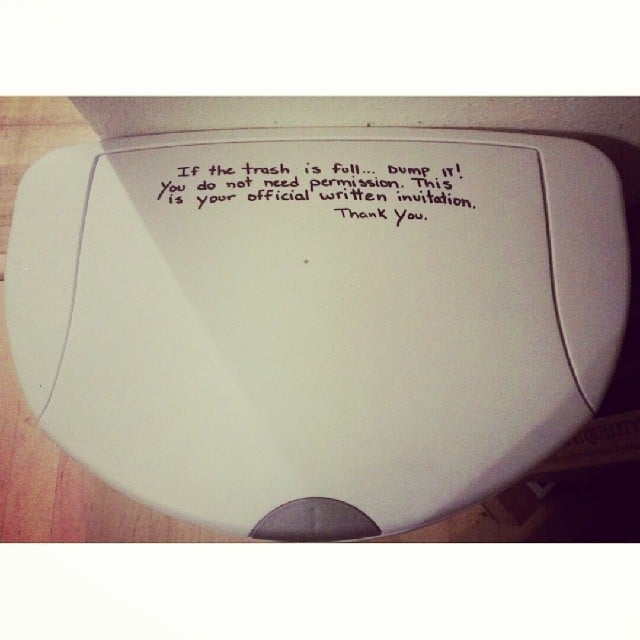 If the trash is full... Dump it!
You do not need permission. This
is your official written invitation.
Thank You.